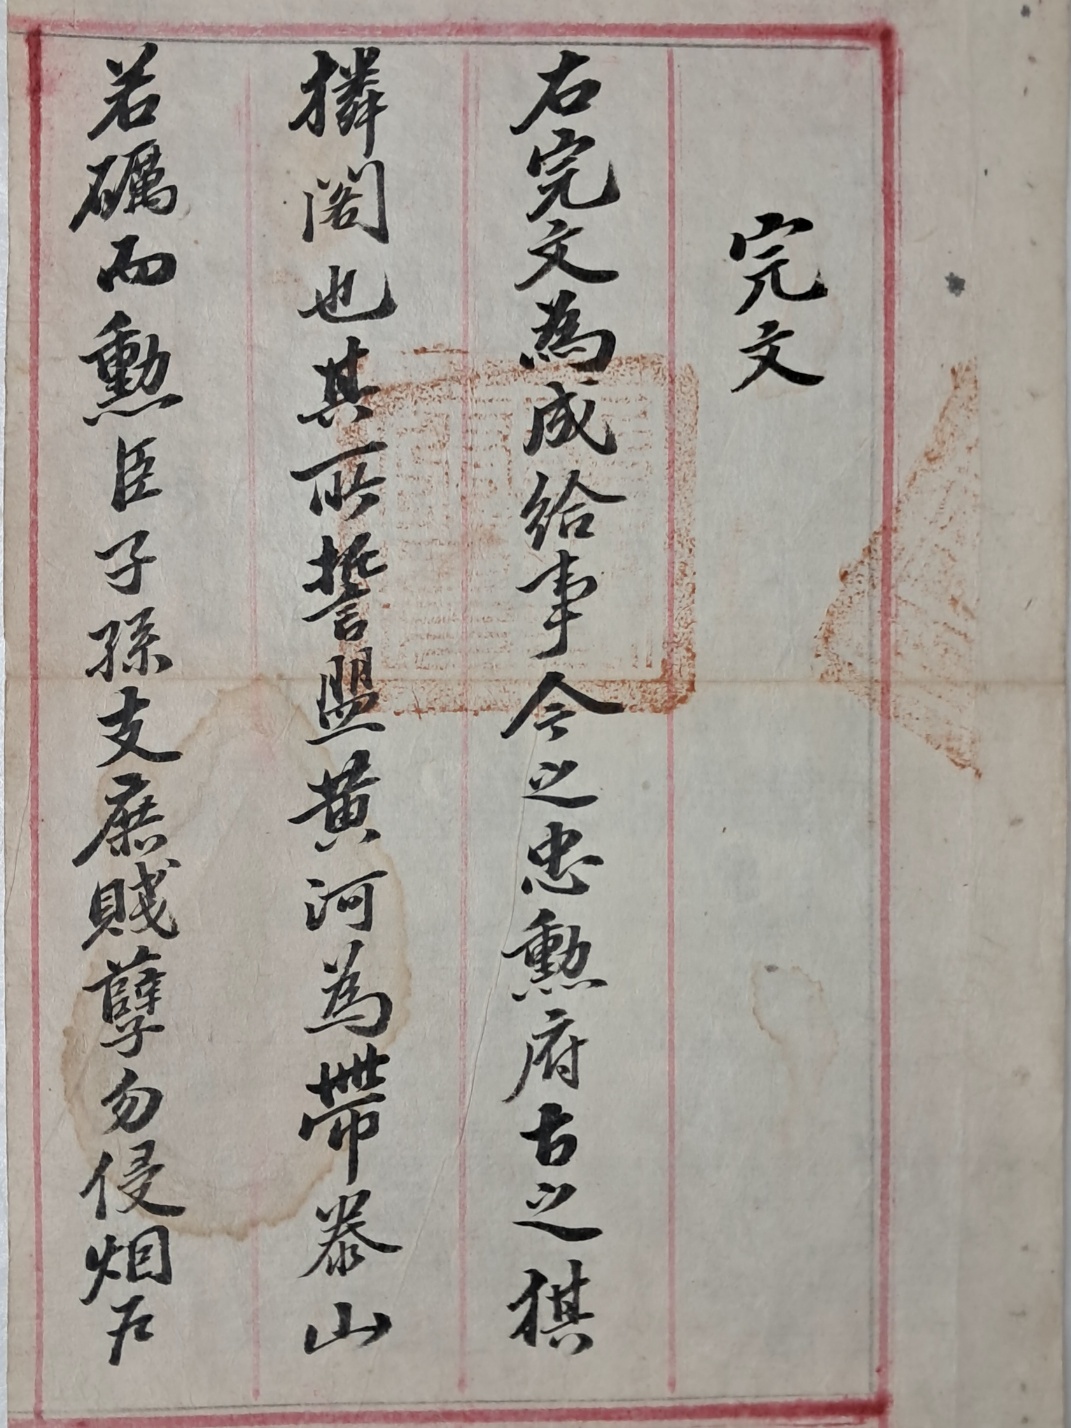 完文
右完文為成給事今之忠勳府古之猉
獜閣也其所誓盟黃河為帶泰山
若礪而勳臣子孫支庶賤孽勿侵烟戶